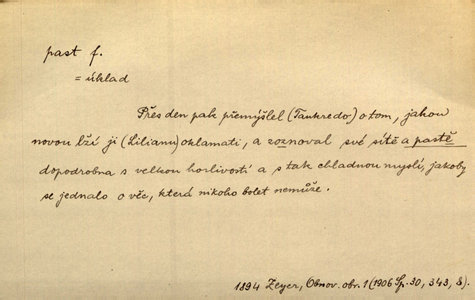 past f.
= úklad
Přes den pak přemýšlel (Tankredo) o tom, jakou
novou lží ji (Lilianu) oklamati, a zosnoval své sítě a pastě
dopodrobna s velkou horlivostí a s tak chladnou myslí, jakoby
se jednalo o věc, která nikoho bolet nemůže.
1894 Zeyer, Obnov. obr. 1 (1906 Sp. 30, 343, 8).